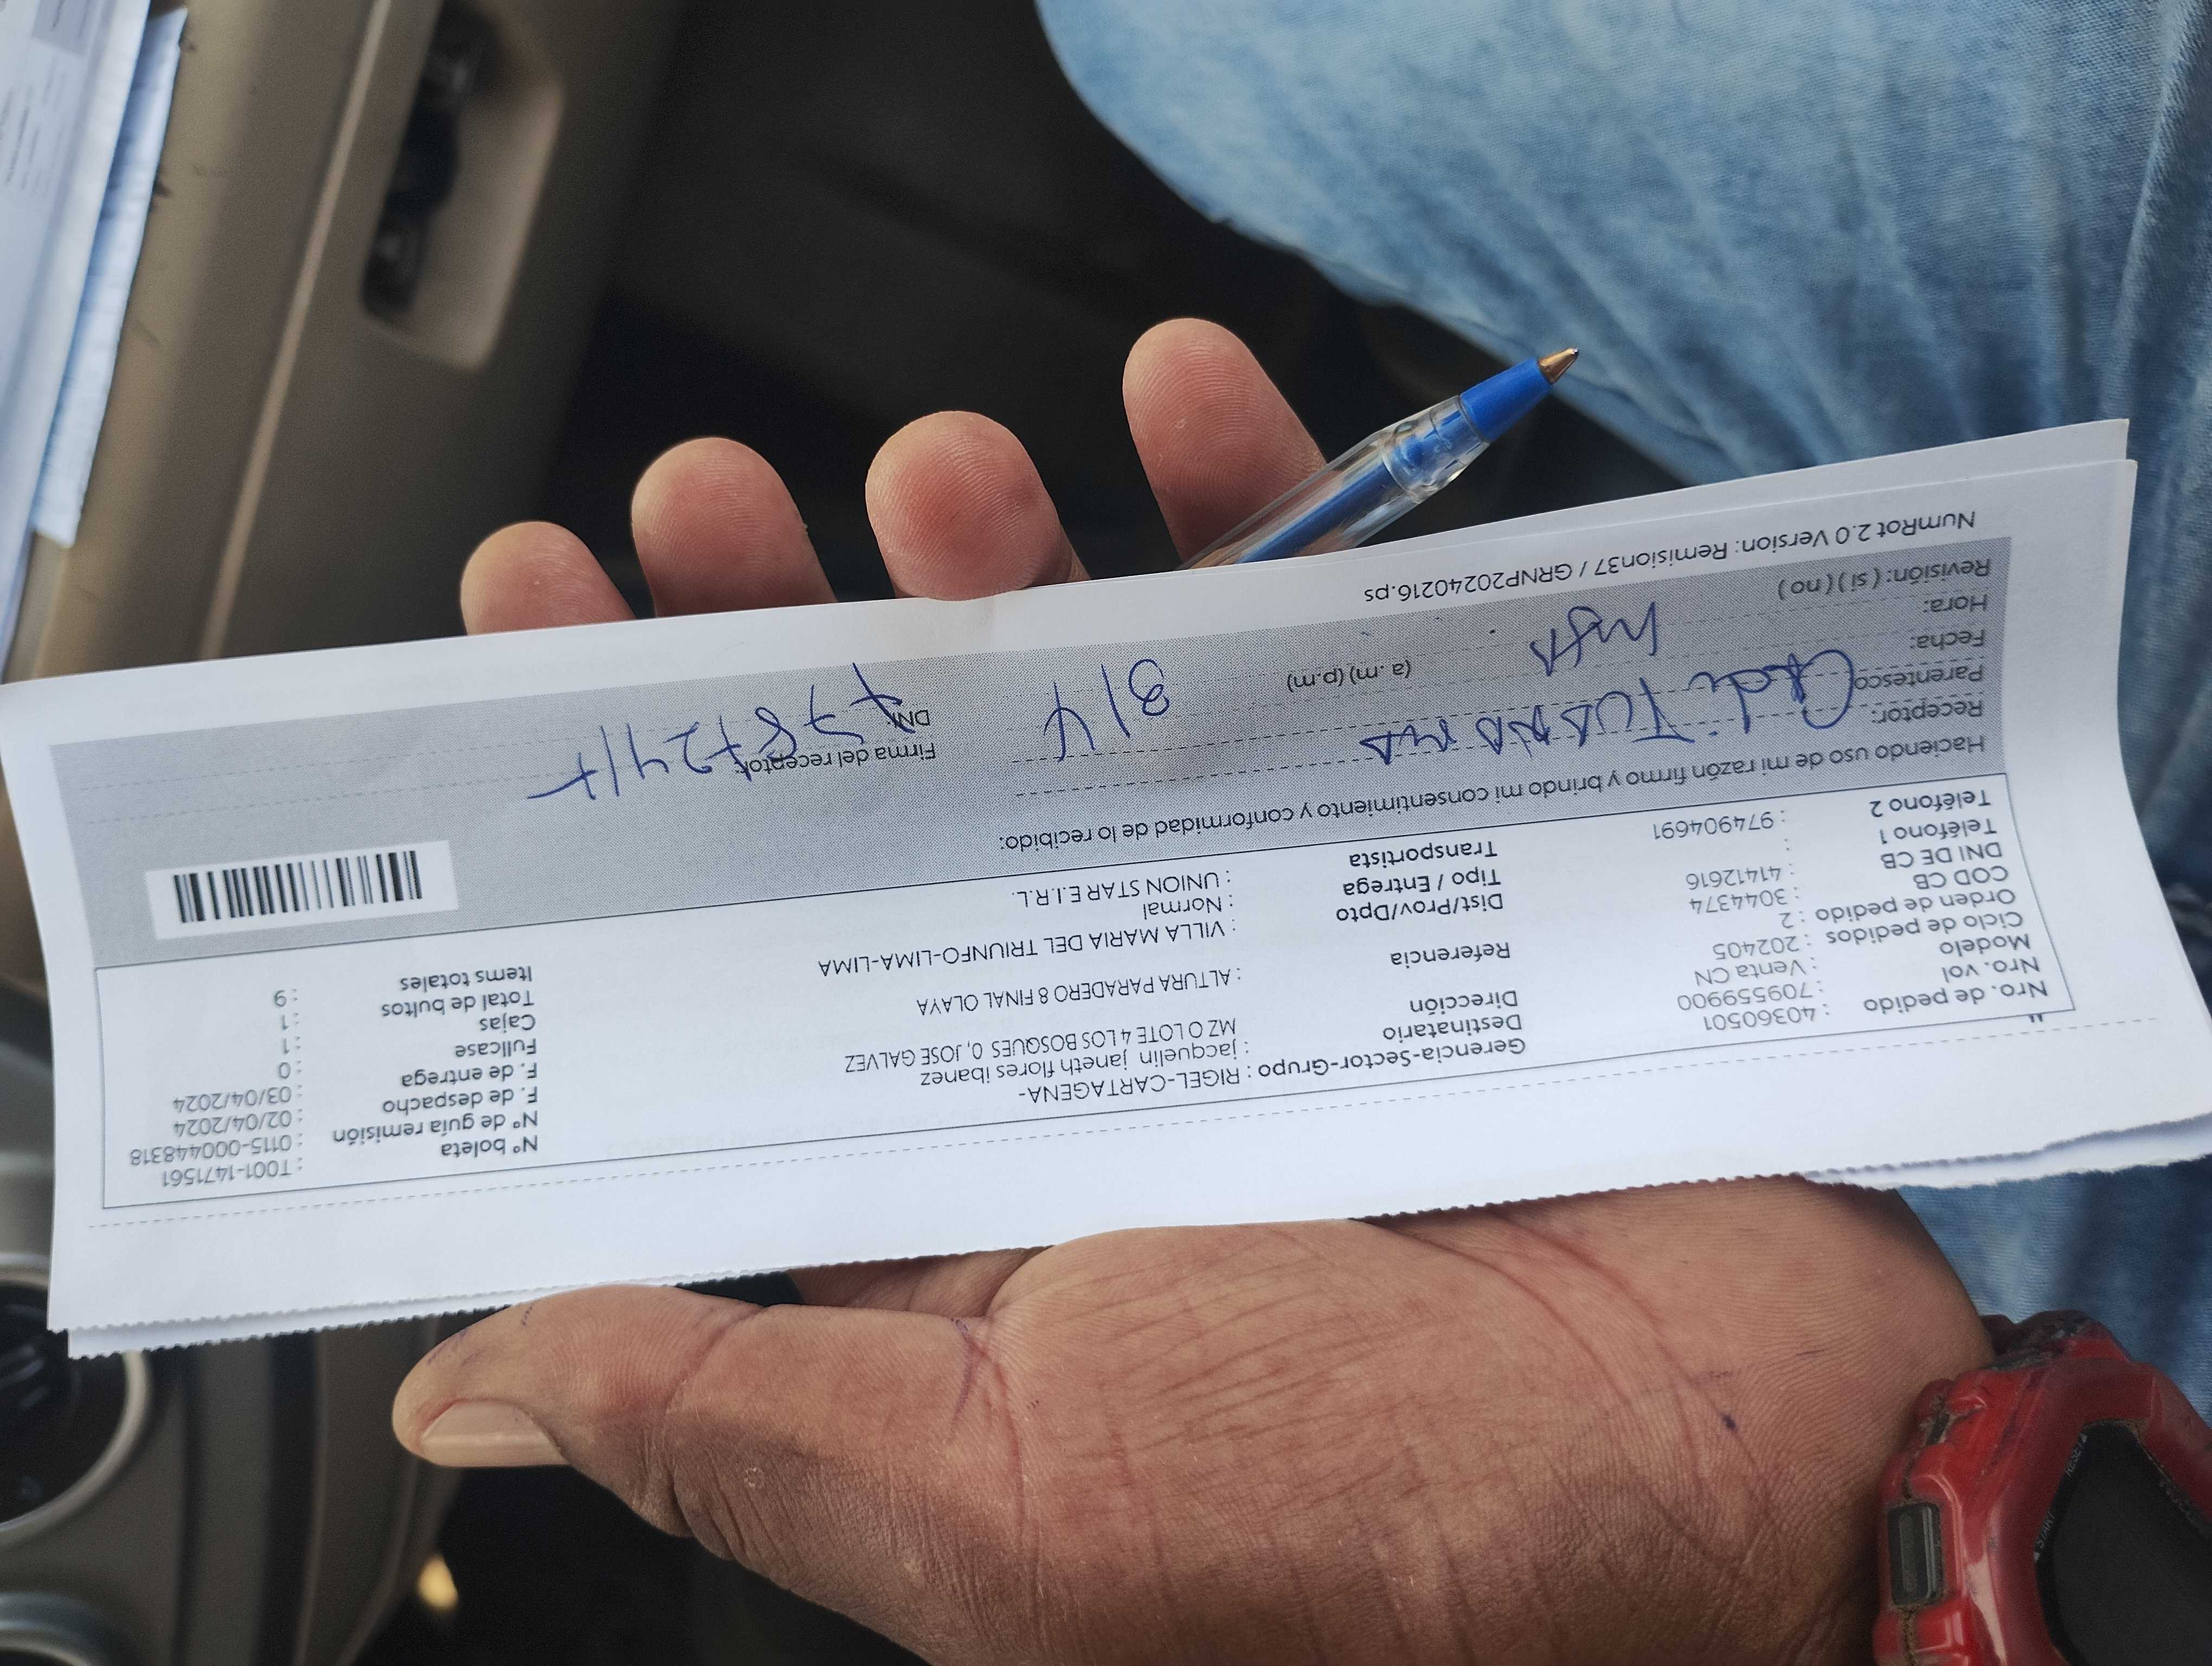 Nro. de pedido : 40360501
Nro. vol : 709559900
Modelo : Venta CN
Ciclo de pedidos : 202405
Orden de pedido : 2
COD CB : 3044374
DNI DE CB : 41412616
Teléfono 1 :
Teléfono 2 : 974904691
Gerencia-Sector-Grupo : RIGEL-CARTAGENA-
Destinatario : jacquelin janeth flores ibanez
Dirección MZ O LOTE 4 LOS BOSQUES 0, JOSE GALVEZ
Referencia : ALTURA PARADERO 8 FINAL OLAYA
Dist/Prov/Dpto : VILLA MARIA DEL TRIUNFO-LIMA-LIMA
Tipo / Entrega : Normal
Transportista : UNION STAR E.I.R.L.
Nº boleta : T001-1471561
Nº de guía remisión : 0115-000448318
F. de despacho : 02/04/2024
F. de entrega : 03/04/2024
Fullcase : 0
Cajas : 1
Total de bultos : 1
Items totales : 9
Haciendo uso de mi razón firmo y brindo mi consentimiento y conformidad de lo recibido:
Receptor:
Parentesco:
Fecha: 3/4
Hora: (a. m) (p.m)
Revisión: ( si ) ( no )
Firma del receptor:
DNI:
NumRot 2.0 Version: Remision37 / GRNP20240216.ps